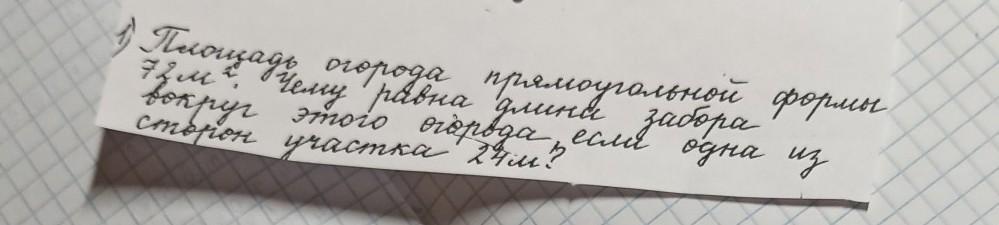 1) Площадь огорода прямоугольной формы
72м². Чему равна длина забора
вокруг этого огорода, если одна из
сторон участка 24м?